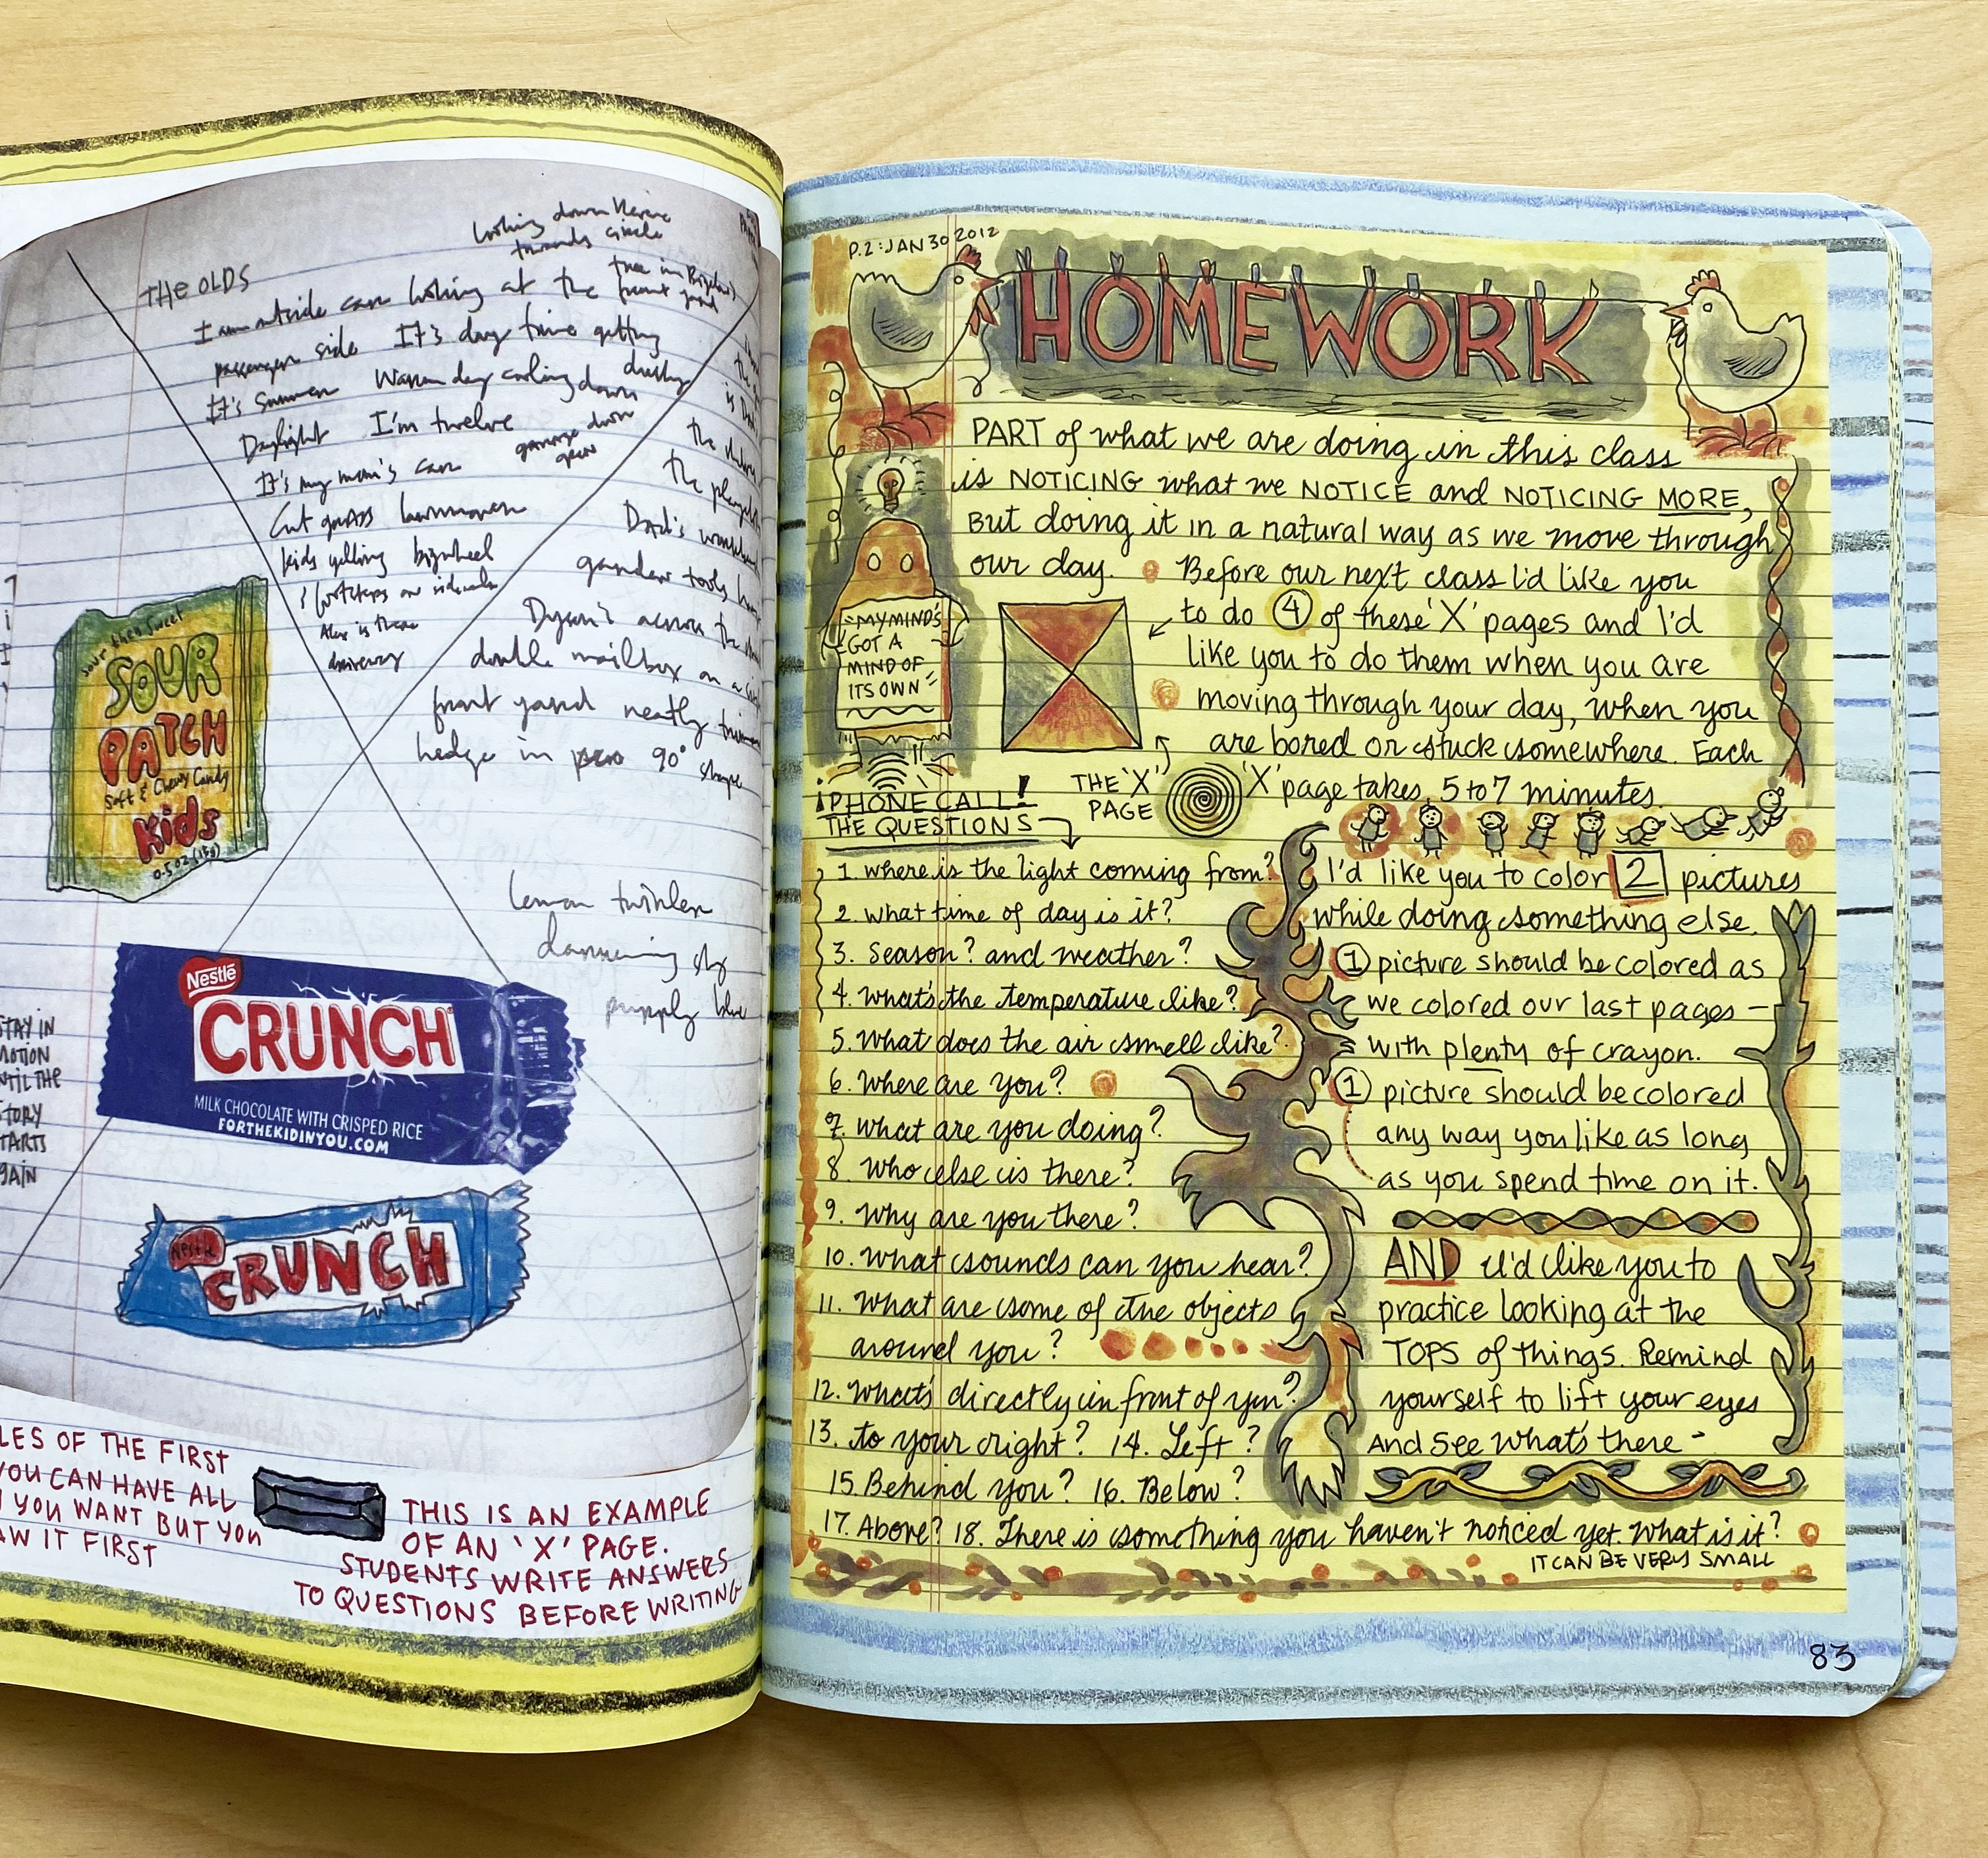 THE OLDS
looking down
towards circle
I am outside car looking at the tree in
front yard
passenger side It's day time getting
It's summer Warm day cooling down
Daylight I'm twelve
It's my mom's car garage door
open
Cut grass lawnmower
kids yelling bigwheel
footsteps on sidewalk
Alex is there
driveway
the
is
the
the
Dad's
garden tools
across the
double mailbox on a
front yard neatly
hedge in 90° shape
lemon twinkler
sky
purply blue
Sour then Sweet
SOUR
PATCH
Soft & Chewy Candy
Kids
0.5 oz (15g)
Nestlé
CRUNCH
MILK CHOCOLATE WITH CRISPED RICE
FORTHEKIDINYOU.COM
Nestle
CRUNCH
STAY IN
MOTION
UNTIL THE
STORY
STARTS
AGAIN
LES OF THE FIRST
YOU CAN HAVE ALL
YOU WANT BUT YOU
AW IT FIRST
THIS IS AN EXAMPLE
OF AN 'X' PAGE.
STUDENTS WRITE ANSWERS
TO QUESTIONS BEFORE WRITING
P.2: JAN 30 2012
HOMEWORK
PART of what we are doing in this class
is NOTICING what we NOTICE and NOTICING MORE,
But doing it in a natural way as we move through
our day. Before our next class I'd like you
to do 4 of these 'X' pages and I'd
like you to do them when you are
moving through your day, when you
are bored or stuck somewhere. Each
'X' page takes 5 to 7 minutes.
"MY MIND'S
GOT A
MIND OF
ITS OWN"
THE 'X'
PAGE
¡PHONE CALL!
THE QUESTIONS
1. where is the light coming from?
2. what time of day is it?
3. Season? and weather?
4. What's the temperature like?
5. What does the air smell like?
6. Where are you?
7. what are you doing?
8. Who else is there?
9. Why are you there?
10. What sounds can you hear?
11. What are some of the objects
around you?
12. What's directly in front of you?
13. to your right? 14. Left?
15. Behind you? 16. Below?
17. Above? 18. There is something you haven't noticed yet. What is it?
IT CAN BE VERY SMALL
I'd like you to color 2 pictures
while doing something else.
1 picture should be colored as
we colored our last pages –
with plenty of crayon.
1 picture should be colored
any way you like as long
as you spend time on it.
AND I'd like you to
practice looking at the
TOPS of things. Remind
yourself to lift your eyes
And see what's there -
83